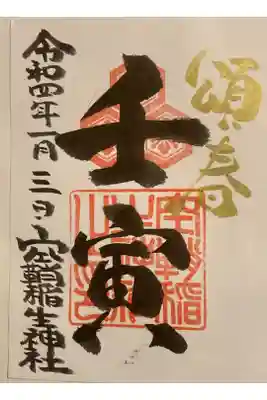 頌春
壬寅
令和四年一月三日
空鞘稲生神社